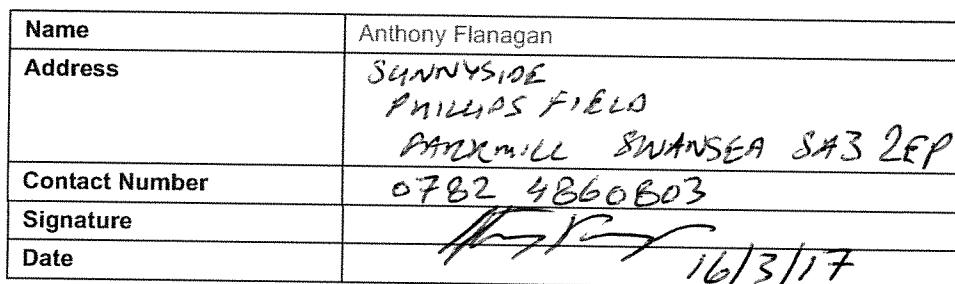 Name Anthony Flanagan
Address SUNNYSIDE
PHILLIPS FIELD
PARKMILL SWANSEA SA3 2EP
Contact Number 0782 4860803
Signature
Date 16/3/17